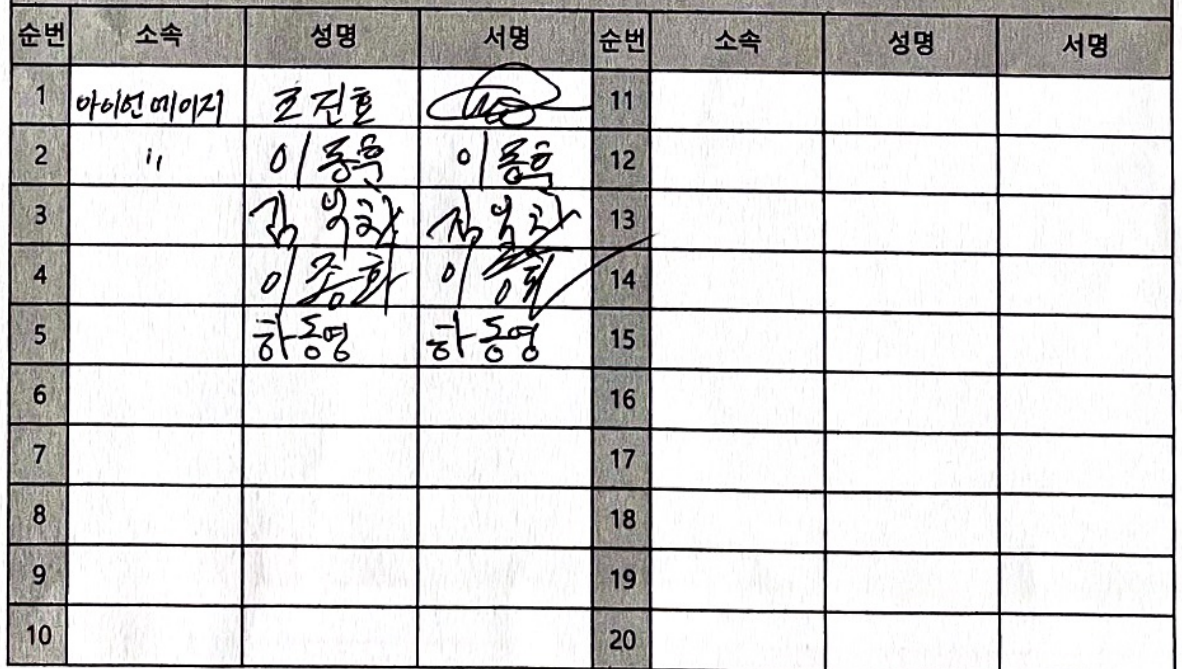 순번 소속 성명 서명 순번 소속 성명 서명
1 아이언메이지 조진호 11
2 〃 이동훈 이동훈 12
3 김 김 13
4 이종화 이종화 14
5 하동영 하동영 15
6 16
7 17
8 18
9 19
10 20